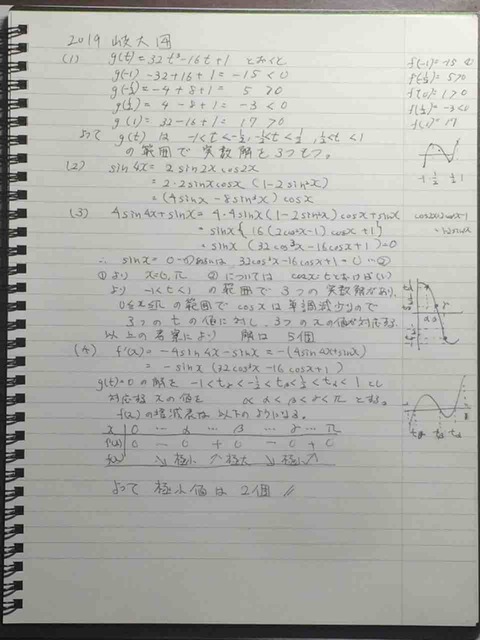 2019 岐大 四
(1) g(t) = 32t³-16t+1 とおくと
g(-1) -32+16+1 = -15 < 0
g(-1/2) = -4+8+1 = 5 > 0
g(1/2) = 4-8+1 = -3 < 0
g(1) = 32-16+1 = 17 > 0
よって g(t) は -1<t<-1/2, -1/2<t<1/2, 1/2<t<1
の範囲で実数解を3つもつ。
(2) sin4x = 2 sin2x cos2x
= 2·2sinx cosx (1-2sin²x)
= (4sinx - 8sin³x) cosx
(3) 4sin4x+sinx = 4·4sinx(1-2sin²x)cosx+sinx
= sinx{16(2cos²x-1)cosx+1}
= sinx(32cos³x-16cosx+1)=0
∴ sinx=0 ①または 32cos³x-16cosx+1=0 …②
①より x=0, π ②については cosx=tとおけば(1)
より -1<t<1 の範囲で3つの実数解があり、
0≦x≦π の範囲で cosxは単調減少なので
3つの t の値に対し、3つの x の値が対応する
以上の考察により 解は 5個
(4) f'(x) = -4sin4x-sinx = -(4sin4x+sinx)
= -sinx(32cos³x-16cosx+1)
g(t)=0 の解を
対応する x の値を α α<β<γ<π とする。
f(x)の増減表は以下のようになる。
x 0 … α … β … γ … π
f'(x) 0 - 0 + 0 - 0 + 0
f(x) ↘ 極小 ↗ 極大 ↘ 極小 ↗
よって 極小値は 2個 //
f(-1) = -15 < 0
f(-1/2) = 5 > 0
f(0) = 1 > 0
f(1/2) = -3 < 0
f(1) = 17